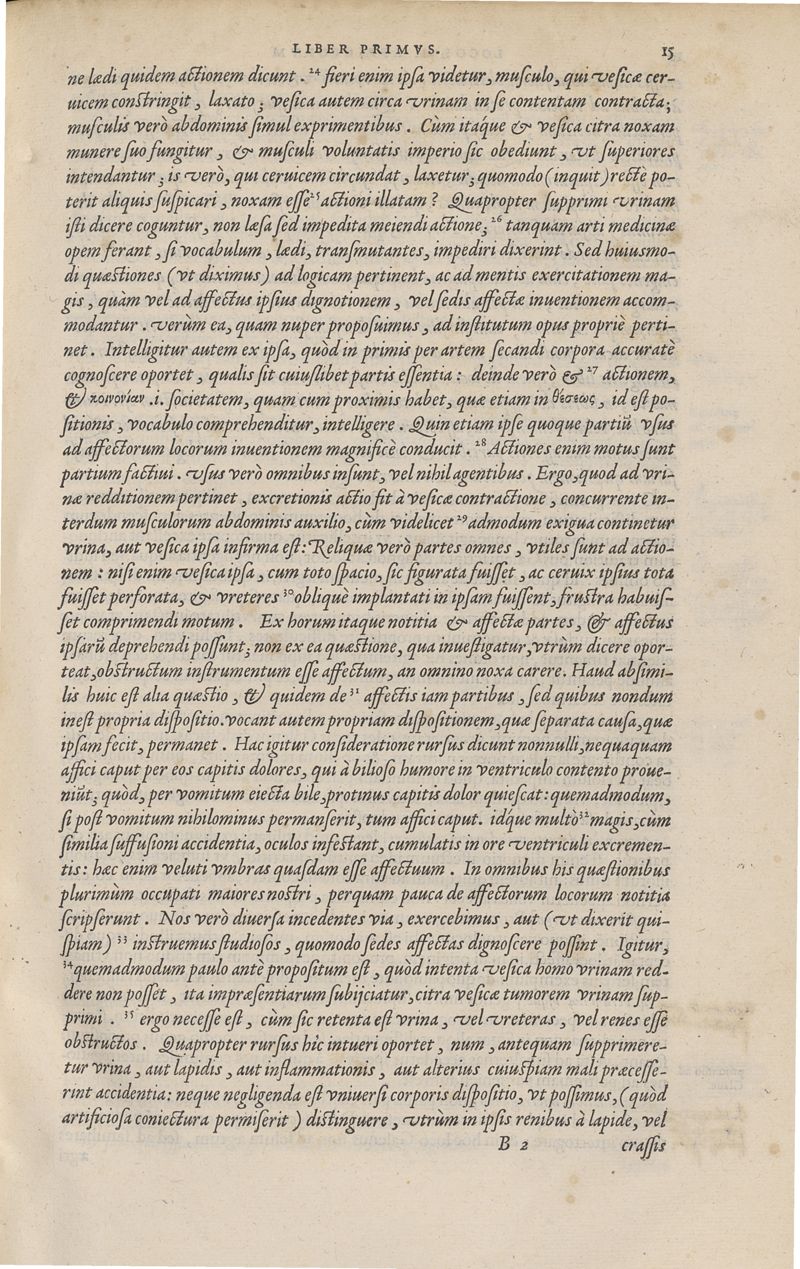 LIBER PRIMVS. 15
ne lædi quidem actionem dicunt. ²⁴ fieri enim ipsa videtur, musculo, qui vesicæ cer-
uicem constringit, laxato; vesica autem circa vrinam in se contentam contracta;
musculis verò abdominis simul exprimentibus. Cùm itaq́ue & vesica citra noxam
munere suo fungitur, & musculi voluntatis imperio sic obediunt, vt superiores
intendantur; is verò, qui ceruicem circundat, laxetur; quomodo (inquit) rectè po-
terit aliquis suspicari, noxam esse ²⁵ actioni illatam? Quapropter supprimi vrinam
isti dicere coguntur, non læsa sed impedita meiendi actione; ²⁶ tanquam arti medicinæ
opem ferant, si vocabulum, lædi, transmutantes, impediri dixerint. Sed huiusmo-
di quæstiones (vt diximus) ad logicam pertinent, ac ad mentis exercitationem ma-
gis, quàm vel ad affectus ipsius dignotionem, vel sedis affectæ inuentionem accom-
modantur. verùm ea, quam nuper proposuimus, ad institutum opus propriè perti-
net. Intelligitur autem ex ipsa, quòd in primis per artem secandi corpora accuratè
cognoscere oportet, qualis sit cuiuslibet partis essentia: deinde verò & ²⁷ actionem,
& κοινονίαν .i. societatem, quam cum proximis habet, quæ etiam in θέσεως, id est po-
sitionis, vocabulo comprehenditur, intelligere. Quin etiam ipse quoque partiũ vsus
ad affectorum locorum inuentionem magnificè conducit. ²⁸ Actiones enim motus sunt
partium factiui. vsus verò omnibus insunt, vel nihil agentibus. Ergo, quod ad vri-
næ redditionem pertinet, excretionis actio fit à vesicæ contractione, concurrente in-
terdum musculorum abdominis auxilio, cùm videlicet ²⁹ admodum exigua continetur
vrina, aut vesica ipsa infirma est: Reliquæ verò partes omnes, vtiles sunt ad actio-
nem: nisi enim vesica ipsa, cum toto spacio, sic figurata fuisset, ac ceruix ipsius tota
fuisset perforata, & vreteres ³⁰ obliquè implantati in ipsam fuissent, frustra habuis-
set comprimendi motum. Ex horum itaque notitia & affectæ partes, & affectus
ipsarũ deprehendi possunt; non ex ea quæstione, qua inuestigatur, vtrùm dicere opor-
teat, obstructum instrumentum esse affectum, an omnino noxa carere. Haud absimi-
lis huic est alia quæstio, & quidem de ³¹ affectis iam partibus, sed quibus nondum
inest propria dispositio. vocant autem propriam dispositionem, quæ separata causa, quæ
ipsam fecit, permanet. Hac igitur consideratione rursus dicunt nonnulli, nequaquam
affici caput per eos capitis dolores, qui à bilioso humore in ventriculo contento proue-
niũt; quòd, per vomitum eiecta bile, protinus capitis dolor quiescat: quemadmodum,
si post vomitum nihilominus permanserit, tum affici caput. idq́ue multò ³² magis, cùm
similia suffusioni accidentia, oculos infestant, cumulatis in ore ventriculi excremen-
tis: hæc enim veluti vmbras quasdam esse affectuum. In omnibus his quæstionibus
plurimùm occupati maiores nostri, perquam pauca de affectorum locorum notitia
scripserunt. Nos verò diuersa incedentes via, exercebimus, aut (vt dixerit qui-
spiam) ³³ instruemus studiosos, quomodo sedes affectas dignoscere possint. Igitur,
³⁴ quemadmodum paulo antè propositum est, quòd intenta vesica homo vrinam red-
dere non posset, ita impræsentiarum subijciatur, citra vesicæ tumorem vrinam sup-
primi. ³⁵ ergo necesse est, cùm sic retenta est vrina, vel vreteras, vel renes esse
obstructos. Quapropter rursus hîc intueri oportet, num, antequam supprimere-
tur vrina, aut lapidis, aut inflammationis, aut alterius cuiuspiam mali præcesse-
rint accidentia: neque negligenda est vniuersi corporis dispositio, vt possimus, (quòd
artificiosa coniectura permiserit) distinguere, vtrùm in ipsis renibus à lapide, vel
B 2 crassis